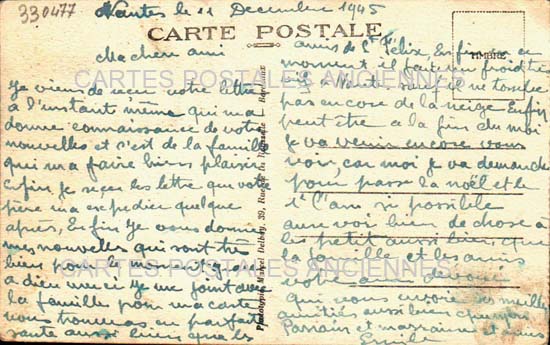 330477
Nantes le 22 Decembre 1945
CARTE POSTALE
TIMBRE
Ma chere ami
Je viens de recu votre lettre
a l'instant même qui m'a
donne connaissance de votre
nouvelles et s'est de la famille
qui m'a faire biens plaisir
Enfin, je reçus les lettre que votre
père m'a expedier quelque
après, Enfin je vous donne
mes nouvelles qui sont très
biens pour le moment grace
a dieu merci je me joint avec
la famille pour ma carte
nous trouve en parfaite
sante aussi biens que les
Phototypie Marcel Delboy, 39, Rue Bordeaux
amis de St Félix, Enfin en ce
moment il fait un froid très
vif a Nantes sauf il ne tombe
pas encore de la neige Enfin
peut être a la fins du moi
je va venir encore vous
voir, car moi je va demander
pour passe la noël et le
1er l'an si possible
aure voir biens de chose à
les petit aussi biens, que
la famille et les amis
votre ami devoir
qui vous envoie ses meilleur
amitiés aussi biens
Parrain et marraine et amis
Emile
CARTES POSTALES ANCIENNES
CARTES POSTALES ANCIENNES